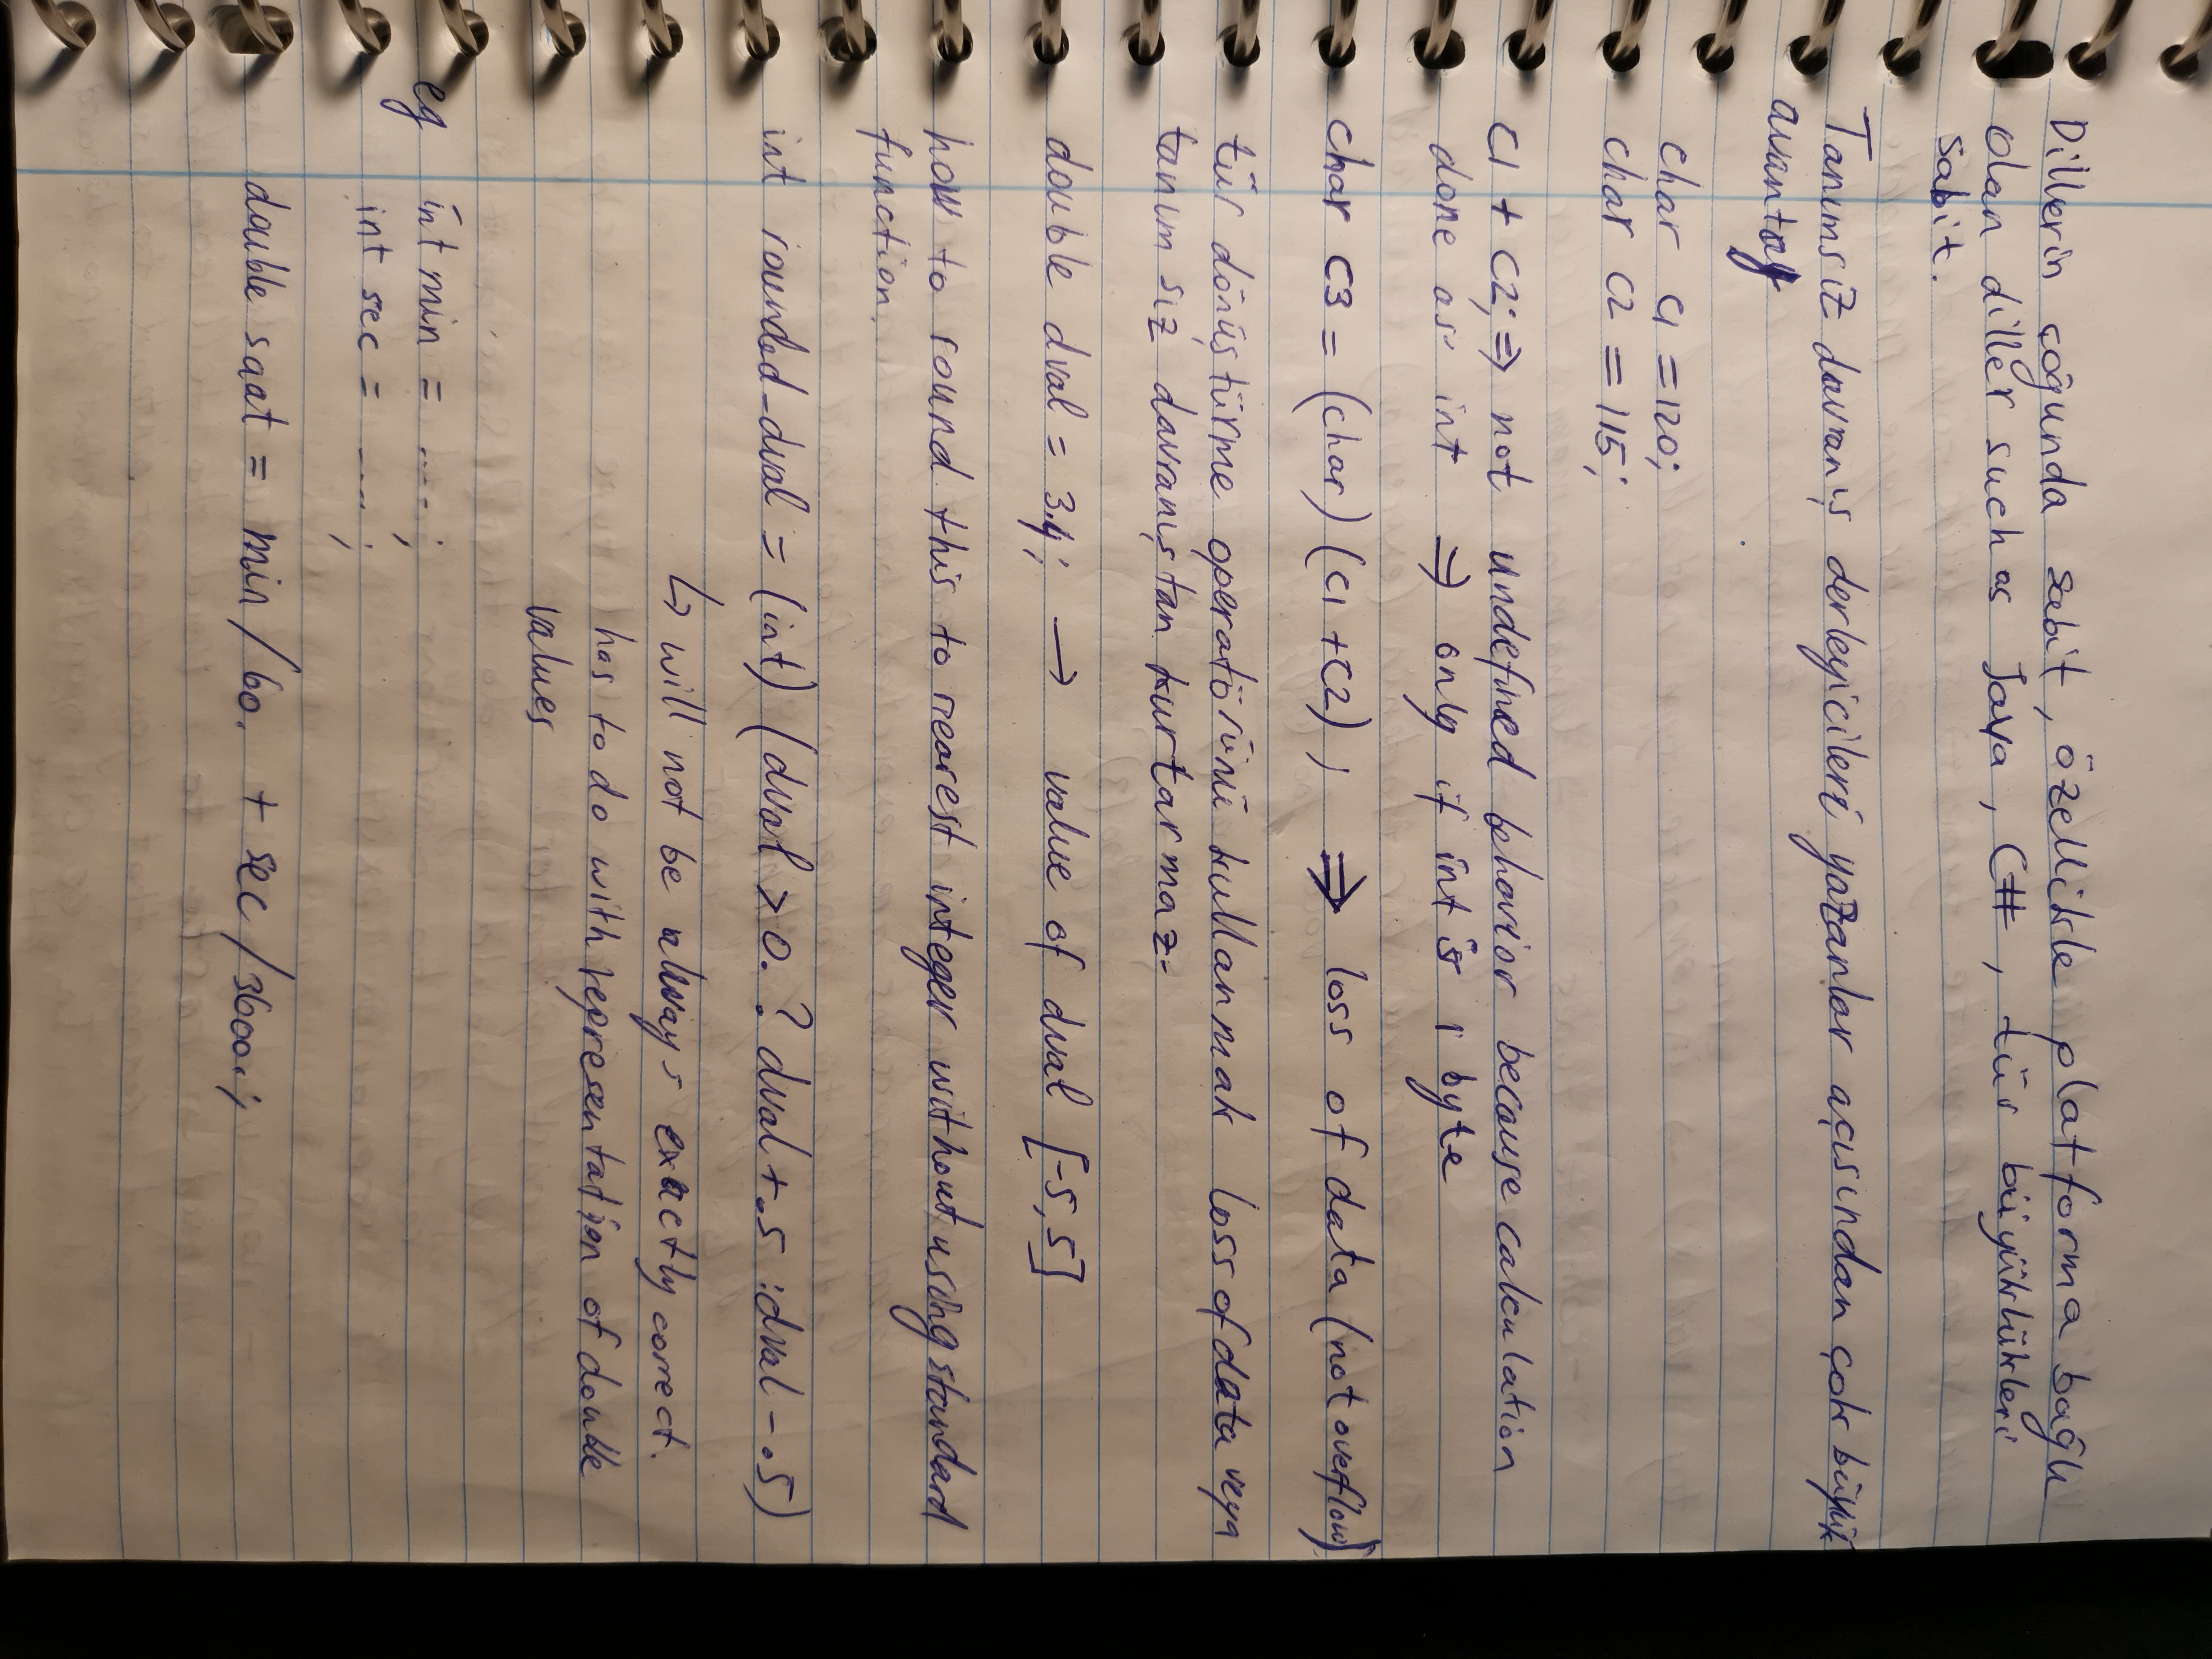 Dillerin çoğunda sabit, özellikle platforma bağlı
olan diller such as Java, C#, tür büyüklükleri
sabit.
Tanımsız davranış derleyicileri yazanlar açısından çok büyük
avantaj
char c1 = 120;
char c2 = 115;
c1 + c2; ⇒ not undefined behavior because calculation
done as int ⇒ only if int is 1 byte
char c3 = (char) (c1 + c2) ; ⇒ loss of data (not overflow)
tür dönüştürme operatörünü kullanmak loss of data veya
tanımsız davranıştan kurtarmaz.
double dval = 3.4; → value of dval [-5,5]
how to round this to nearest integer without using standard
function.
int rounded_dval = (int) (dval > 0. ? dval + .5 : dval - .5)
↳ will not be always exactly correct.
has to do with representation of double
values
eg int min = ....;
int sec = ....;
double saat = min / 60. + sec / 3600.;